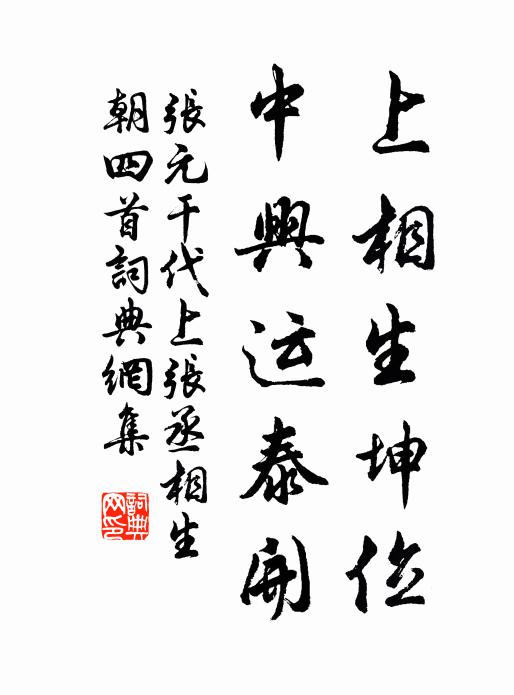 上相生坤位
中興运泰開
張元干代上張丞相生
朝四首詞典網集
詞典網印